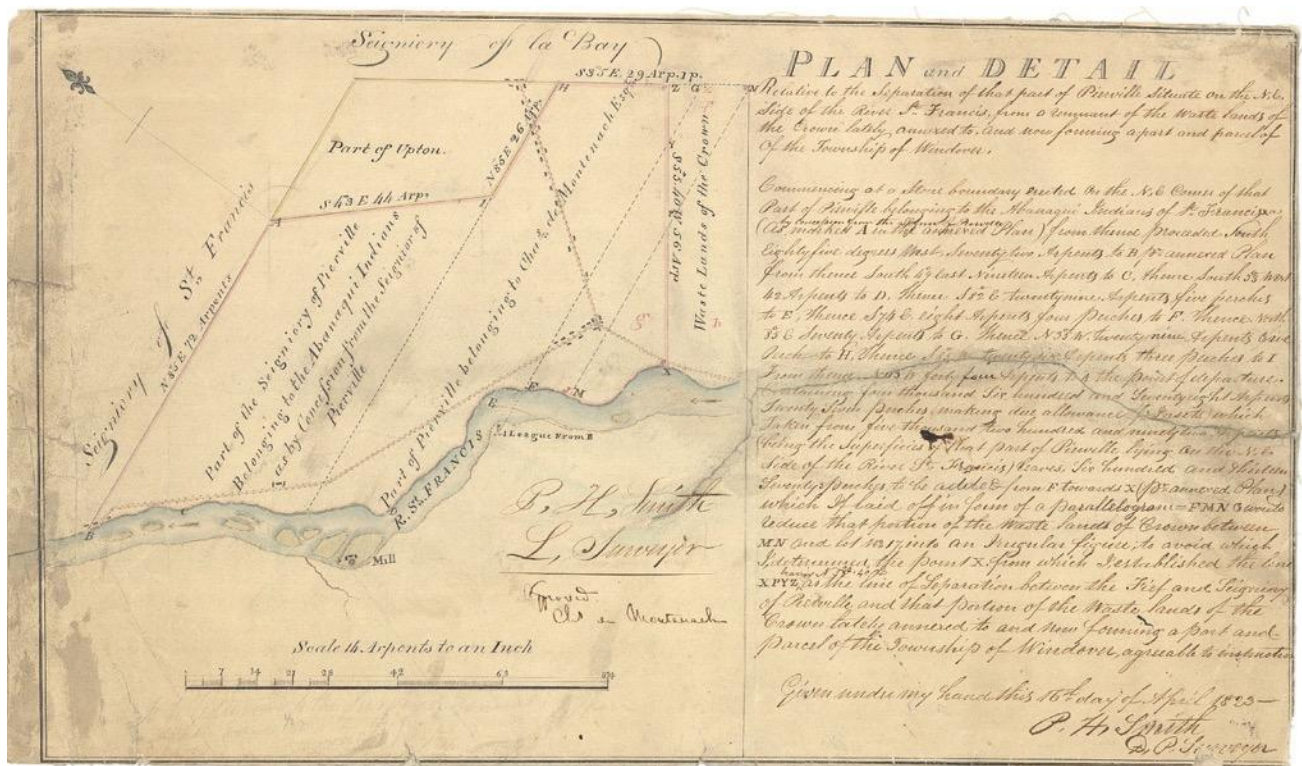 Seigniory of la Bay
S35E 29 Arp. 1p.
H
Z
G
N
Part of Upton.
N85E 26 Arp.
S43 E 44 Arp.
A
I
Y
S55.40W 56 Arp
Waste Lands of the Crown
Seigniory of St Francis
N85E 72 Arpents
Part of the Seigniory of Pierville
Belonging to the Abanaqui Indians
as by Concession from the Seignior of
Pierville
Part of Pierville belonging to Chas de Montenach Esqr
X
F
M
E
B
1 League From B
R. St. FRANCIS
Mill
P. H. Smith
L. Surveyor
Approved
Chs de Montenach
Scale 14 Arpents to an Inch
7 14 21 28 42 63 84
PLAN and DETAIL
Relative to the Separation of that part of Pierville Situate on the N.E.
Side of the River St. Francis, from a remnant of the Waste lands of
the Crown lately annexed to, and now forming a part and parcel of
Of the Township of Windover.
Commencing at a Stone boundary erected On the N.E Corner of that
Part of Pierville belonging to the Abanaqui Indians of St. Francis
by Concession from the
(As marked A in the annexed Plan) from thence proceeded South
Eighty five degrees West, Seventy two Arpents to B pr annexed Plan
from thence South 47 East Nineteen Arpents to C, thence South 58 West
42 Arpents to D. thence S82 E twenty nine Arpents five perches
to E, thence S74 E. eight Arpents four Perches to F. thence North
85 E Seventy Arpents to G. Thence N35 W. twenty nine Arpents One
Perch to H, thence S85 W twenty six Arpents three perches to I
From thence N43 W forty four Arpents to A the point of departure
Containing four thousand Six hundred and Seventy eight Arpents
Twenty Seven perches, making due allowance for which
Taken from five thousand two hundred and ninety two Arpents
being the Superficies of that part of Pierville lying On the N.E
Side of the River St. Francis) leaves Six hundred and thirteen
Seventy perches to be added from F towards X (pr annexed Plan)
which If laid off in form of a parallelogram = FMNG would
reduce that portion of the Waste lands of Crown between
MN and lot No. 17, into an Irregular figure; to avoid which
I determined the point X from which I established the line
XPYZ, as the line of Separation between the Fief and Seigniory
of Pierville and that portion of the Waste lands of the
Crown lately annexed to and now forming a part and
Parcel of the Township of Windover, agreable to instruction
Given under my hand this 16th day of April 1823 —
P. H. Smith
D. P. Surveyor